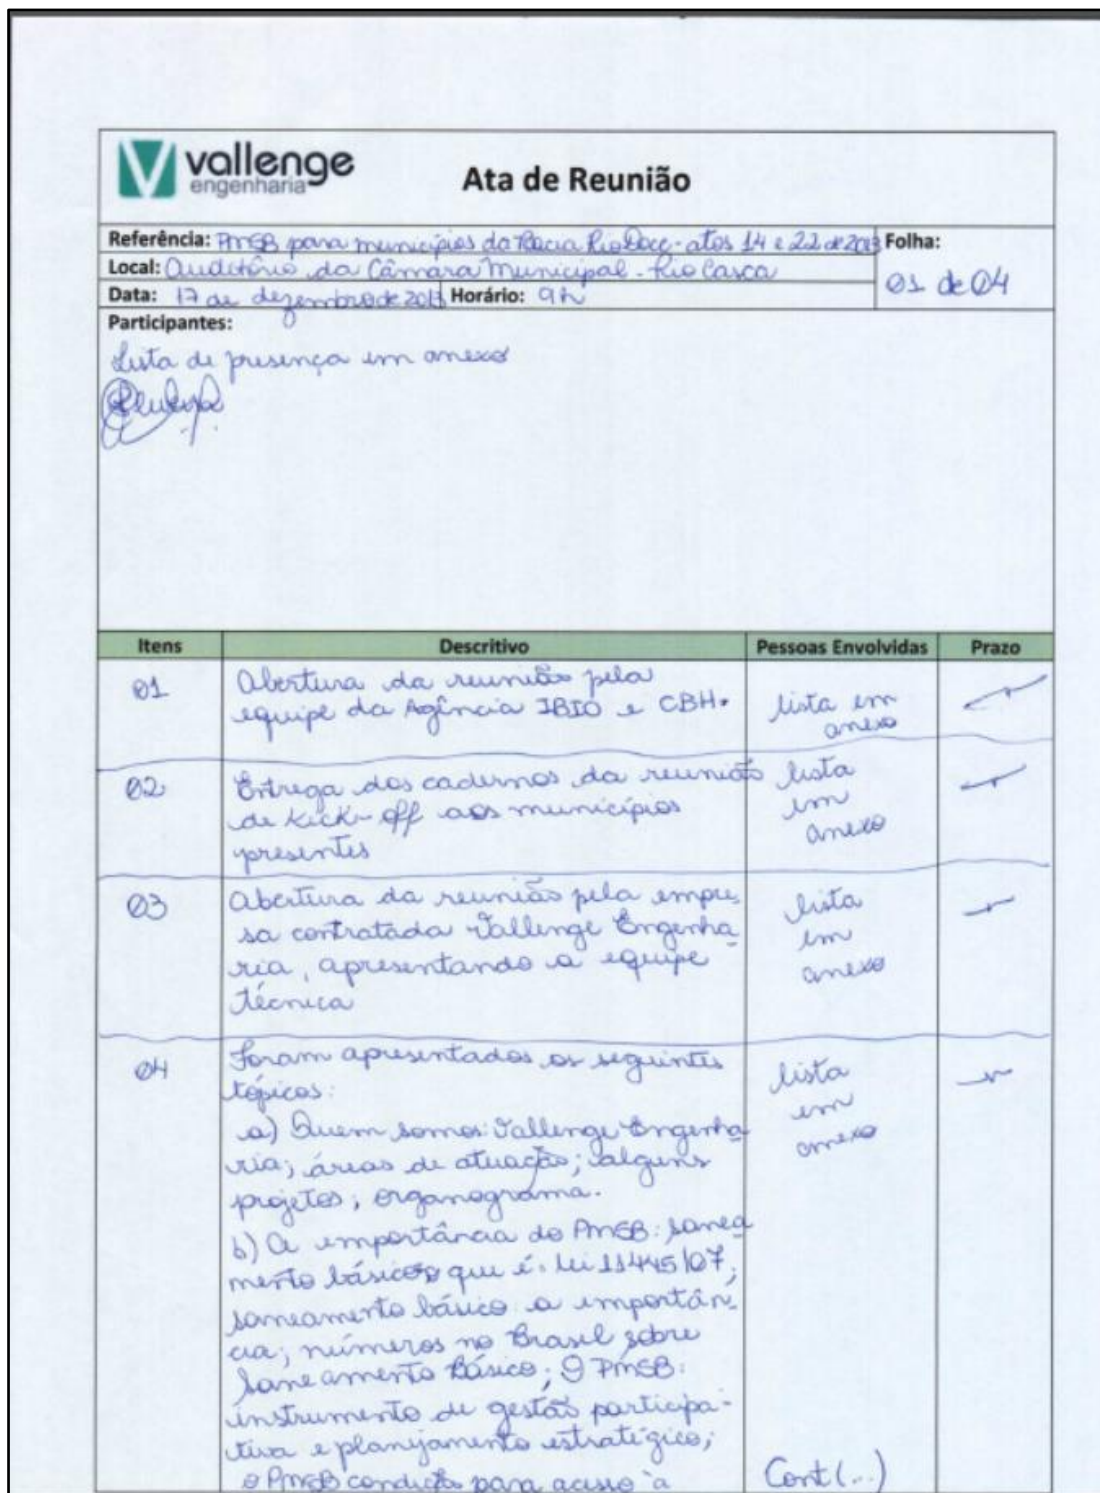 vallenge
engenharia
Ata de Reunião
Referência: PMSB para municípios da Bacia Rio Doce - atos 14 e 22 de 2013
Folha:
01 de 04
Local: Auditório da Câmara Municipal - Rio Casca
Data: 17 de dezembro de 2013 Horário: 9h
Participantes:
Lista de presença em anexo
Itens Descritivo Pessoas Envolvidas Prazo
01
Abertura da reunião pela
equipe da Agência IBIO e CBH.
lista em
anexo
02
Entrega dos cadernos da reunião
de kick-off aos municípios
presentes
lista
em
anexo
03
Abertura da reunião pela empre
sa contratada Vallenge Engenha
ria, apresentando a equipe
técnica
lista
em
anexo
04
Foram apresentados os seguintes
tópicos:
a) Quem somos: Vallenge Engenha
ria; áreas de atuação; alguns
projetos; organograma.
b) A importância do PMSB: sanea
mento básico o que é: lei 11445/07;
saneamento básico a importân
cia; números no Brasil sobre
Saneamento Básico; O PMSB:
instrumento de gestão participa-
tiva e planejamento estratégico;
o PMSB condição para acesso à
lista
em
anexo
Cont (...)